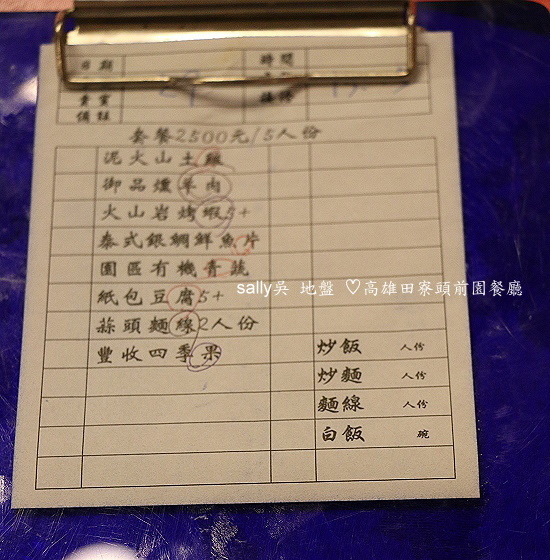 日期 時間
貴賓
備註
套餐2500元/5人份
泥火山土雞
御品爌羊肉
火山岩烤蝦5+
泰式銀綢鮮魚片
園區有機青蔬
紙包豆腐5+
蒜頭麵線2人份
豐收四季果
sally吳 地盤 ♡高雄田寮頭前園餐廳
炒飯 人份
炒麵 人份
麵線 人份
白飯 碗